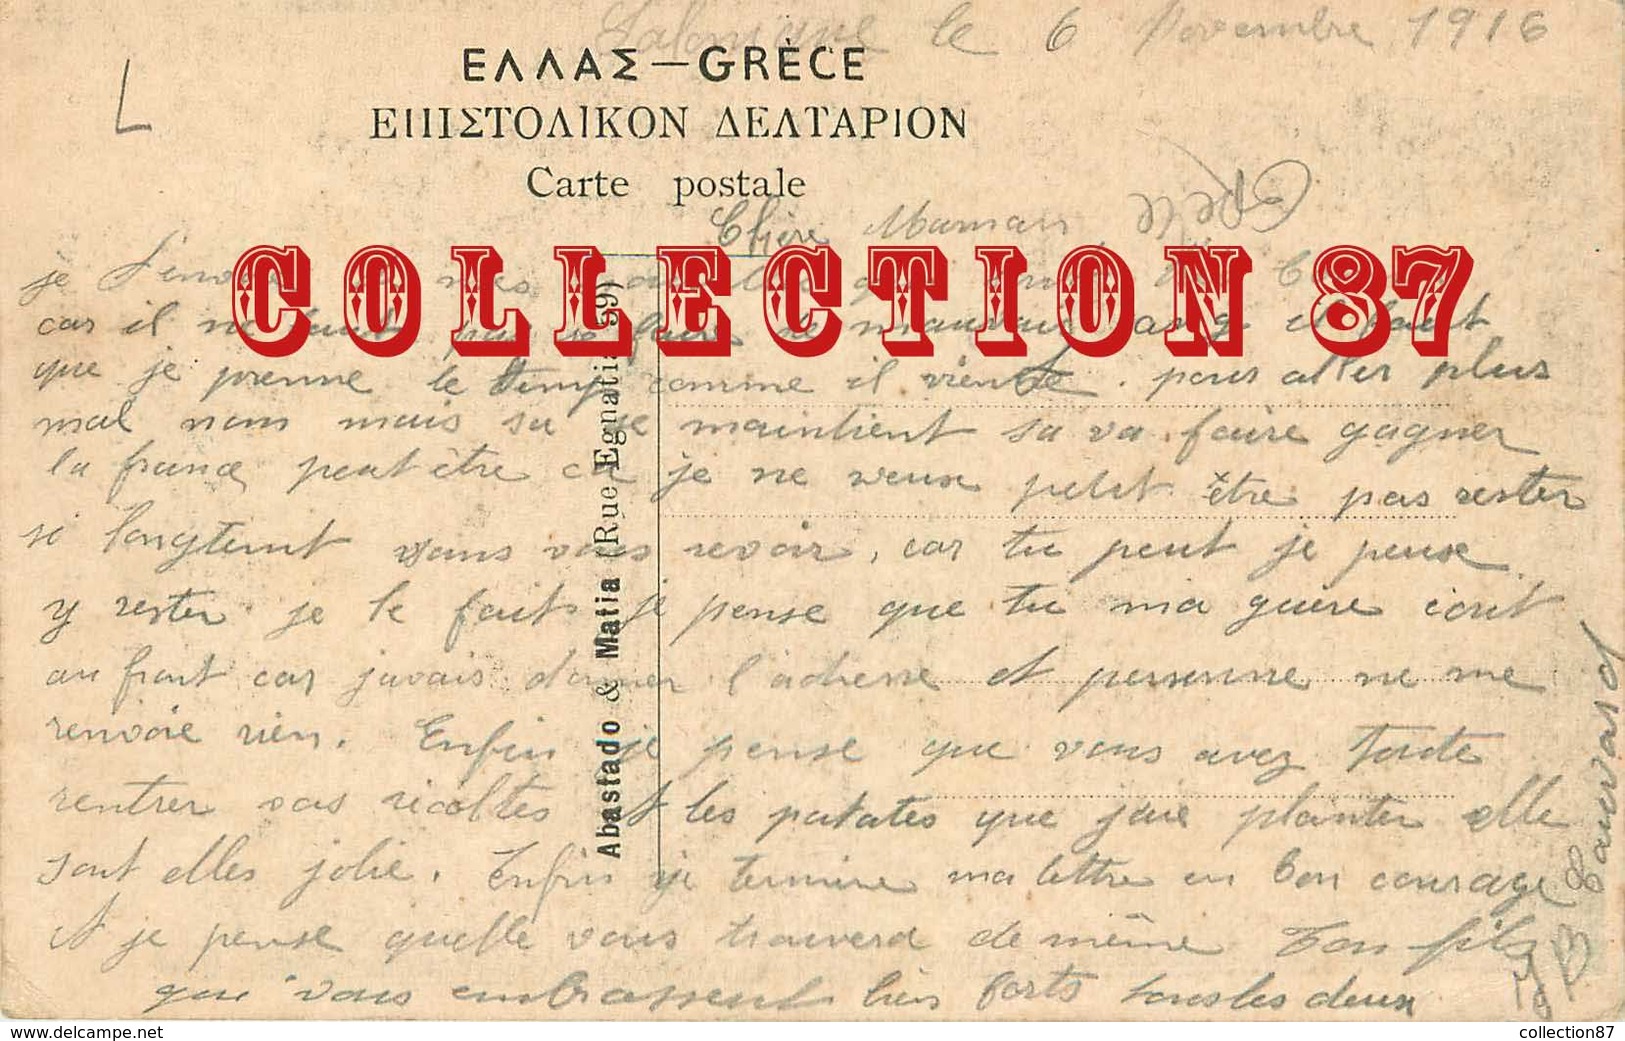 Salonique le 6 Novembre 1916
L
ΕΛΛΑΣ — GRÈCE
ΕΠΙΣΤΟΛΙΚΟΝ ΔΕΛΤΑΡΙΟΝ
Carte postale
GRECE
Chère Maman
COLLECTION 87
je
car il ne faut pas se faire de mauvais sang il faut
que je prenne le temp comme il vient. pour aller plus
mal non mais sa se maintient sa va faire gagner
la france peut être car je ne veux petit être pas rester
si longtemt sans vous revoir, car tu peut je pense
y rester. je le fait je pense que tu ma guere ecrit
au front car javais donner l'adresse et personne ne me
renvoie rien. Enfin je pense que vous avez toute
rentrer vos récoltes et les patates que jaie planter elle
sont elles jolie. Enfin je termine ma lettre en bon courage
et je pense quelle vous trouvera de même Ton fils
qui vous embrassent bien forts tous les deux
Abastado & Matia (Rue Egnatia 59)
collection87
www.delcampe.net